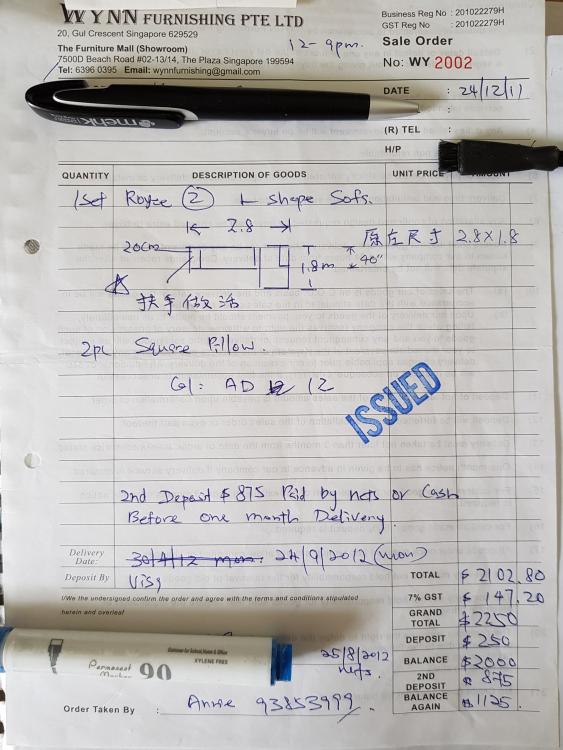 WYNN FURNISHING PTE LTD
20, Gul Crescent Singapore 629529
The Furniture Mall (Showroom)
7500D Beach Road #02-13/14, The Plaza Singapore 199594
Tel: 6396 0395 Email: wynnfurnishing@gmail.com
12 - 9pm.
Business Reg No : 201022279H
GST Reg No : 201022279H
Sale Order
No: WY 2002
DATE : 24/12/11
(R) TEL :
H/P
QUANTITY DESCRIPTION OF GOODS UNIT PRICE
1set Royce 2 L shape Sofa.
2.8
20cm
1.8m
40"
原在尺寸 2.8 x 1.8
扶手做活
2pc Square Pillow.
Col: AD 12
ISSUED
2nd Deposit $875 Paid by nets or Cash
Before one month Delivery.
Delivery Date: 30/4/12 mon. 24/9/2012 (mon)
Deposit By Visa
I/We the undersigned confirm the order and agree with the terms and conditions stipulated
herein and overleaf
TOTAL $2102.80
7% GST $147.20
GRAND TOTAL $2250
DEPOSIT $250
BALANCE $2000
2ND DEPOSIT $875
BALANCE AGAIN $1125.
25/8/2012
nets.
Permanent Marker 90
XYLENE FREE
Order Taken By : Annie 93853999